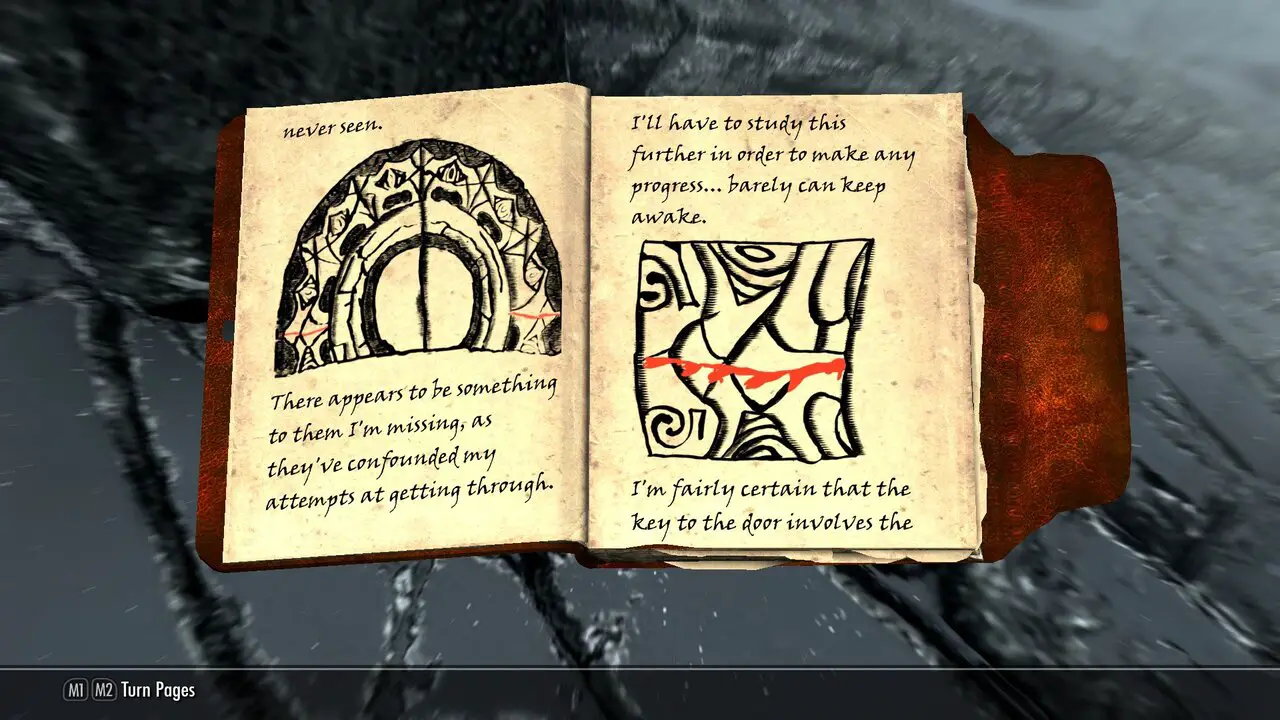 never seen.
There appears to be something
to them I'm missing, as
they've confounded my
attempts at getting through.
I'll have to study this
further in order to make any
progress... barely can keep
awake.
I'm fairly certain that the
key to the door involves the
M1 M2 Turn Pages